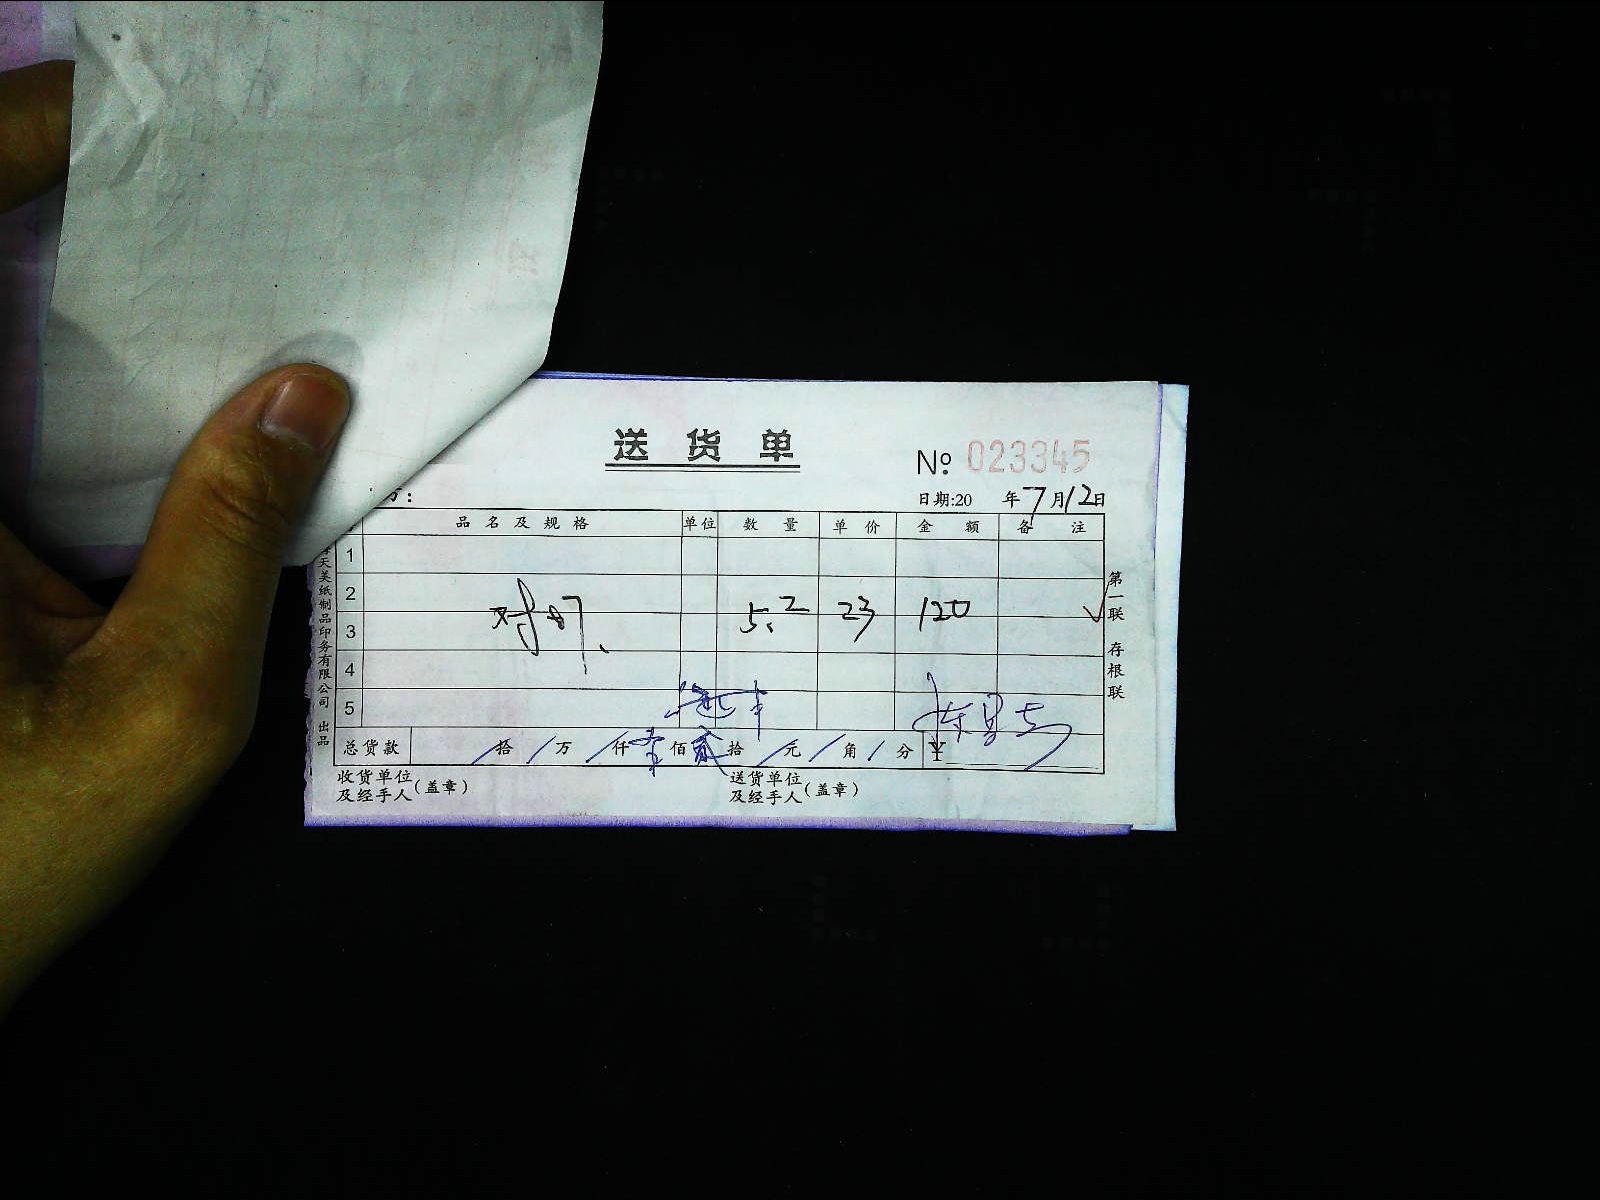 送货单
№ 023345
方：
日期:20 年7月12日
品名及规格 单位 数量 单价 金额 备注
1
2
对虾 5.2 23 120
3
4
5
总货款 / 拾 / 万 / 仟 壹 佰 贰 拾 / 元 / 角 / 分 ¥
收货单位及经手人(盖章)
送货单位及经手人(盖章)
第一联 存根联
天美纸制品印务有限公司 出品